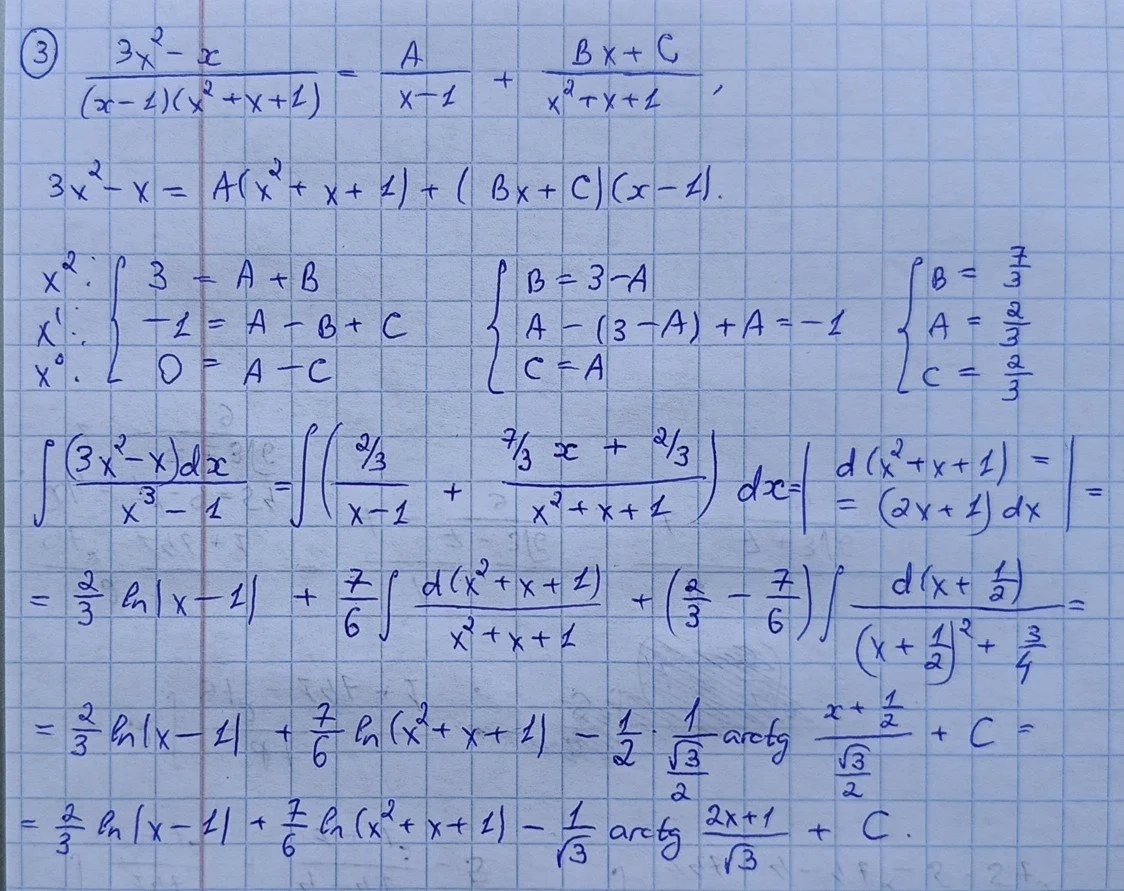 ③ (3x² − x)/((x−1)(x²+x+1)) = A/(x−1) + (Bx+C)/(x²+x+1),
3x² − x = A(x² + x + 1) + (Bx + C)(x − 1).
x²: { 3 = A + B { B = 3 − A { B = 7/3
x¹: { −1 = A − B + C { A − (3 − A) + A = −1 { A = 2/3
x⁰: { 0 = A − C { C = A { C = 2/3
∫ (3x² − x)dx/(x³ − 1) = ∫ ( (2/3)/(x−1) + (7/3 x + 2/3)/(x²+x+1) ) dx = | d(x²+x+1) = = (2x+1)dx | =
= 2/3 ln|x−1| + 7/6 ∫ d(x²+x+1)/(x²+x+1) + (2/3 − 7/6) ∫ d(x + 1/2)/((x + 1/2)² + 3/4) =
= 2/3 ln|x−1| + 7/6 ln(x²+x+1) − 1/2 · 1/(√3/2) arctg (x + 1/2)/(√3/2) + C =
= 2/3 ln|x−1| + 7/6 ln(x²+x+1) − 1/√3 arctg (2x+1)/√3 + C.